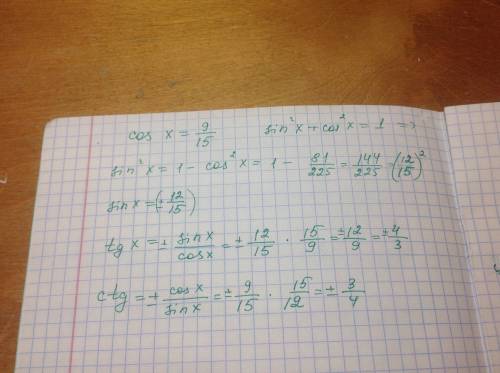 cos x = 9/15 sin²x + cos²x = 1 =>
sin²x = 1 - cos²x = 1 - 81/225 = 144/225 = (12/15)²
sin x = (± 12/15)
tg x = ± sin x/cos x = ± 12/15 · 15/9 = ±12/9 = ±4/3
ctg = ± cos x/sin x = ± 9/15 · 15/12 = ± 3/4